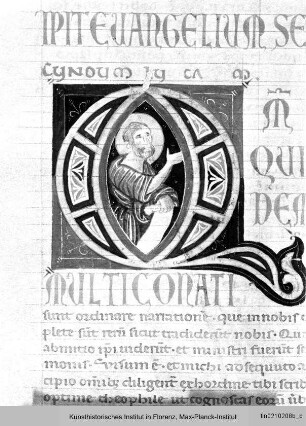 IPIT EVANGELIUM SE
CVNDVM LVCAM
Q M̄
QUI
DEM
MULTI CONATI
sunt ordinare narratione. que in nobis c
plete sunt rerum sicut tradiderunt nobis. Qui
ab initio ipi viderunt. et ministri fuerunt s
monis. Visum est et michi assequuto a
cipio omib; diligent ex ordine tibi scrib
optime theophile. ut cognoscas eorum ūb
Kunsthistorisches Institut in Florenz, Max-Planck-Institut